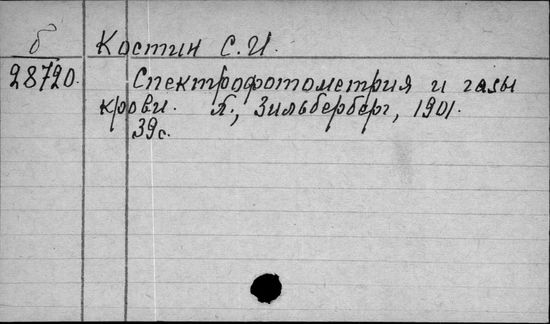 б Костин С.И.
28720. Спектрофотометрия и газы
крови. Х., Зильберберг, 1901.
39с.